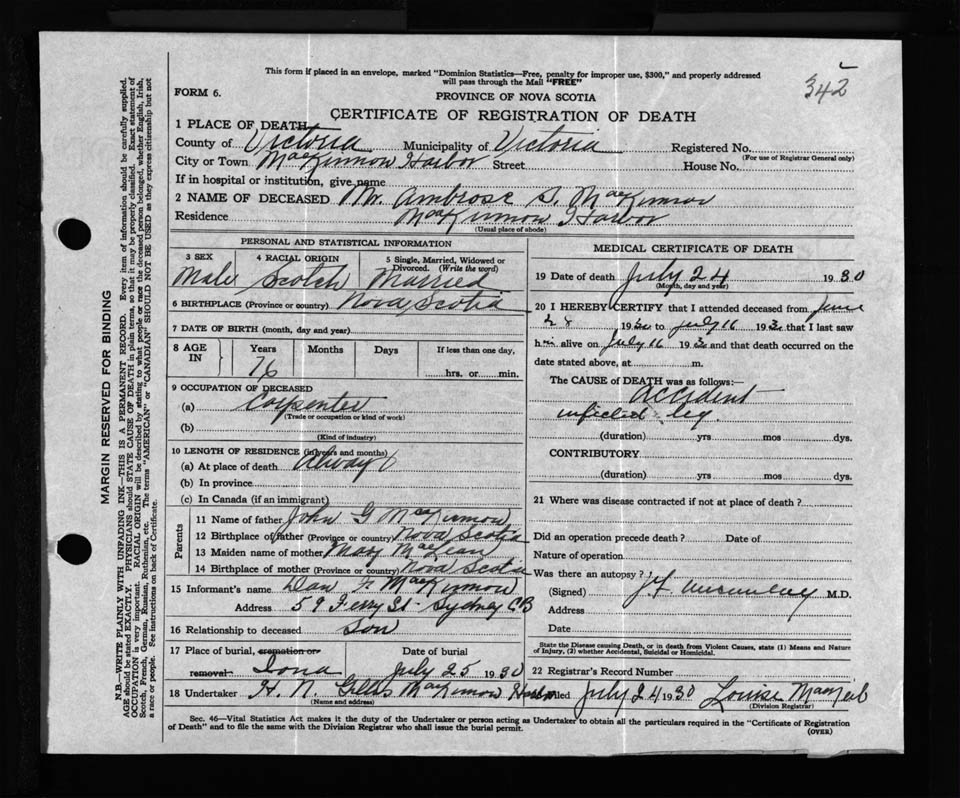 342
This form if placed in an envelope, marked "Dominion Statistics—Free, penalty for improper use, $300," and properly addressed
will pass through the Mail "FREE"
FORM 6.
PROVINCE OF NOVA SCOTIA
CERTIFICATE OF REGISTRATION OF DEATH
1 PLACE OF DEATH
County of Victoria Municipality of Victoria Registered No.
(For use of Registrar General only)
City or Town MacKinnon Harbor Street House No.
If in hospital or institution, give name
2 NAME OF DECEASED Mr. Ambrose S. MacKinnon
Residence MacKinnon Harbor
(Usual place of abode)
PERSONAL AND STATISTICAL INFORMATION
3 SEX 4 RACIAL ORIGIN 5 Single, Married, Widowed or Divorced. (Write the word)
Male Scotch Married
6 BIRTHPLACE (Province or country) Nova Scotia
7 DATE OF BIRTH (month, day and year)
8 AGE IN Years Months Days If less than one day,
76 hrs. or min.
9 OCCUPATION OF DECEASED
(a) Carpenter
(Trade or occupation or kind of work)
(b)
(Kind of industry)
10 LENGTH OF RESIDENCE (in years and months)
(a) At place of death Always
(b) In province
(c) In Canada (if an immigrant)
Parents
11 Name of father John G MacKinnon
12 Birthplace of father (Province or country) Nova Scotia
13 Maiden name of mother Mary MacLean
14 Birthplace of mother (Province or country) Nova Scotia
15 Informant's name Dan F MacKinnon
Address 59 Ferry St - Sydney CB
16 Relationship to deceased Son
17 Place of burial, cremation or removal Date of burial
Iona July 25 1930
18 Undertaker H. N. Gillis MacKinnon Harbor
(Name and address)
MEDICAL CERTIFICATE OF DEATH
19 Date of death July 24 1930
(Month, day and year)
20 I HEREBY CERTIFY that I attended deceased from June
28 1930 to July 16 1930 that I last saw
him alive on July 16 1930 and that death occurred on the
date stated above, at m.
The CAUSE of DEATH was as follows:—
Accident
infected leg
(duration) yrs mos dys.
CONTRIBUTORY
(duration) yrs mos dys.
21 Where was disease contracted if not at place of death?
Did an operation precede death? Date of
Nature of operation
Was there an autopsy?
(Signed) M.D.
Address
Date
State the Disease causing Death, or in death from Violent Causes, state (1) Means and Nature
of Injury, (2) whether Accidental, Suicidal or Homicidal.
22 Registrar's Record Number
Filed July 24 1930 Louise MacNeil
(Division Registrar)
Sec. 46—Vital Statistics Act makes it the duty of the Undertaker or person acting as Undertaker to obtain all the particulars required in the "Certificate of Registration
of Death" and to file the same with the Division Registrar who shall issue the burial permit.
(OVER)
MARGIN RESERVED FOR BINDING
N.B.—WRITE PLAINLY WITH UNFADING INK—THIS IS A PERMANENT RECORD. Every item of information should be carefully supplied.
AGE should be stated EXACTLY. PHYSICIANS should STATE CAUSE OF DEATH in plain terms, so that it may be properly classified. Exact statement of
OCCUPATION is very important. RACIAL ORIGIN will be described by stating to what people or race the deceased person belonged, whether English, Irish,
Scotch, French, German, Russian, Ruthenian, etc. The terms "AMERICAN" or "CANADIAN" SHOULD NOT BE USED as they express citizenship but not
a race or people. See instructions on back of Certificate.